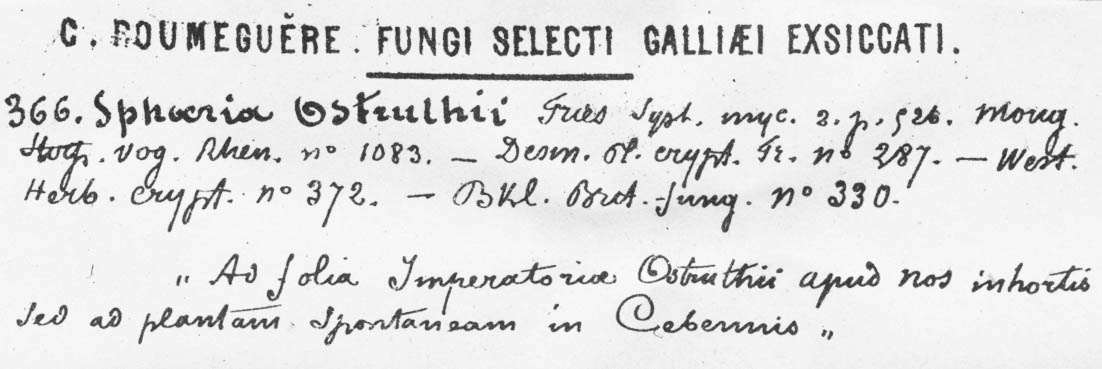 C. ROUMEGUĚRE. FUNGI SELECTI GALLIÆI EXSICCATI.
366. Sphæria Ostruthii Fries Syst. myc. 2. p. 526. Moug.
Stirp. vog. Rhen. nº 1083. — Desm. Pl. crypt. Fr. nº 287. — West.
Herb. crypt. nº 372. — Bkl. Brit. fung. nº 330.
„ Ad folia Imperatoriæ Ostruthii apud nos inhortis
sed ad plantam spontaneam in Cebennis „